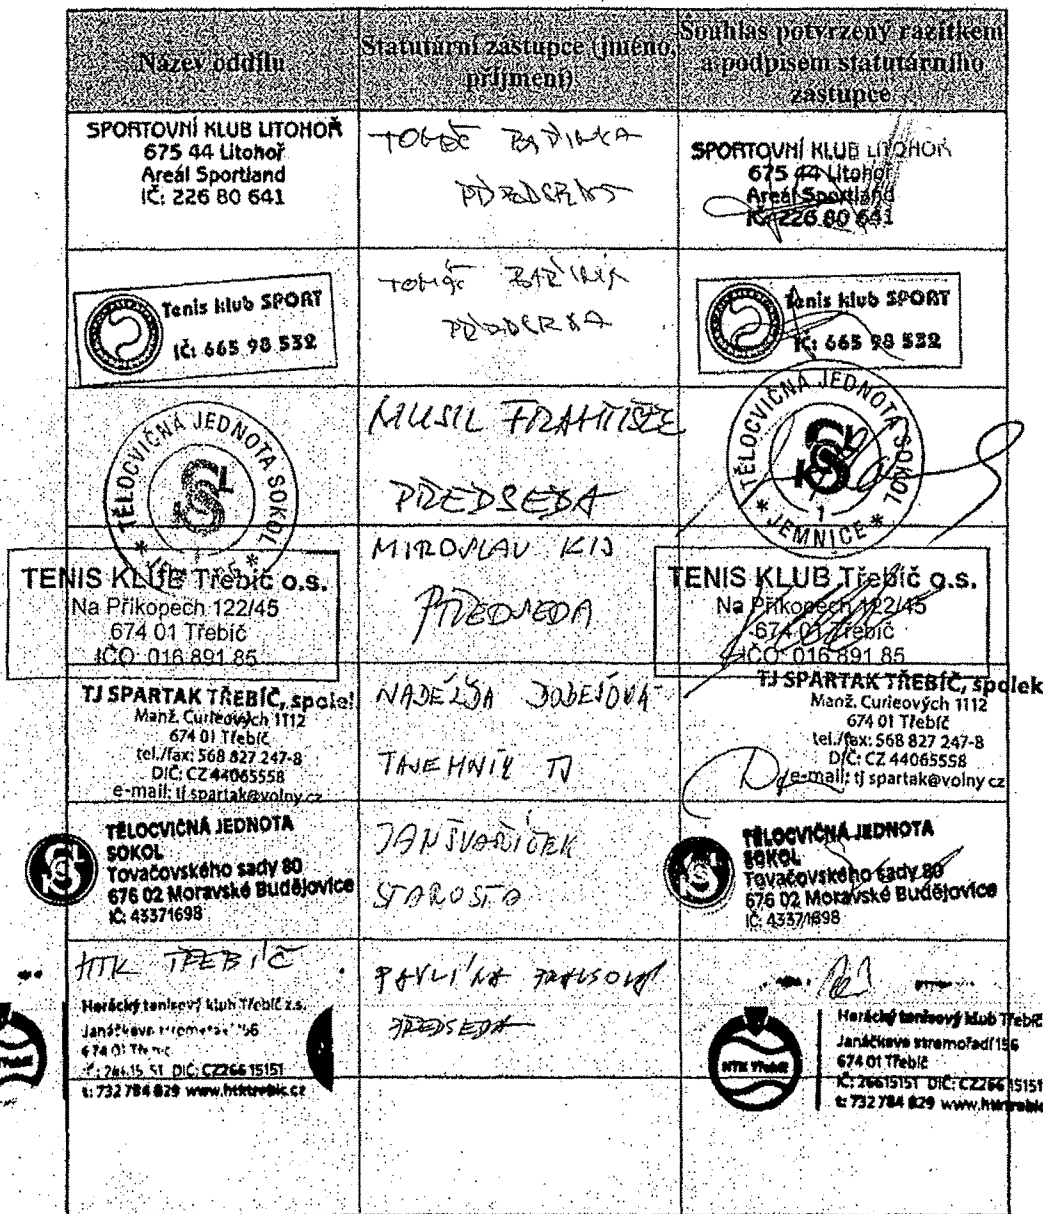 Název oddílu
Statutární zástupce (jméno, příjmení)
Souhlas potvrzený razítkem a podpisem statutárního zástupce
SPORTOVNÍ KLUB LITOHOŘ
675 44 Litohoř
Areál Sportland
IČ: 226 80 641
SPORTOVNÍ KLUB LITOHOŘ
675 44 Litohoř
Areál Sportland
IČ: 226 80 641
Tenis klub SPORT
IČ: 665 98 532
Tenis klub SPORT
IČ: 665 98 532
TĚLOCVIČNÁ JEDNOTA SOKOL
MUSIL FRANTIŠEK
PŘEDSEDA
TĚLOCVIČNÁ JEDNOTA SOKOL
* JEMNICE *
TENIS KLUB Třebíč o.s.
Na Příkopech 122/45
674 01 Třebíč
IČO: 016 891 85
MIROSLAV
PŘEDSEDA
TENIS KLUB Třebíč o.s.
Na Příkopech 122/45
674 01 Třebíč
IČO: 016 891 85
TJ SPARTAK TŘEBÍČ, spolek
Manž. Curieových 1112
674 01 Třebíč
tel./fax: 568 827 247-8
DIČ: CZ 44065558
e-mail: tj spartak@volny cz
TAJEMNÍK TJ
TJ SPARTAK TŘEBÍČ, spolek
Manž. Curieových 1112
674 01 Třebíč
tel./fax: 568 827 247-8
DIČ: CZ 44065558
e-mail: tj spartak@volny cz
TĚLOCVIČNÁ JEDNOTA
SOKOL
Tovačovského sady 80
676 02 Moravské Budějovice
IČ: 43371698
JAN
STAROSTA
TĚLOCVIČNÁ JEDNOTA
SOKOL
Tovačovského sady 80
676 02 Moravské Budějovice
IČ: 43371698
HTK TŘEBÍČ
Horácký tenisový klub Třebíč z.s.
Janáčkovo stromořadí 156
674 01 Třebíč
DIČ: CZ26615151
t: 732 784 829 www.htktrebic.cz
PAVLÍNA
PŘEDSEDA
HTK TŘEBÍČ
Horácký tenisový klub Třebíč
Janáčkovo stromořadí 156
674 01 Třebíč
IČ: 26615151 DIČ: CZ26615151
t: 732 784 829